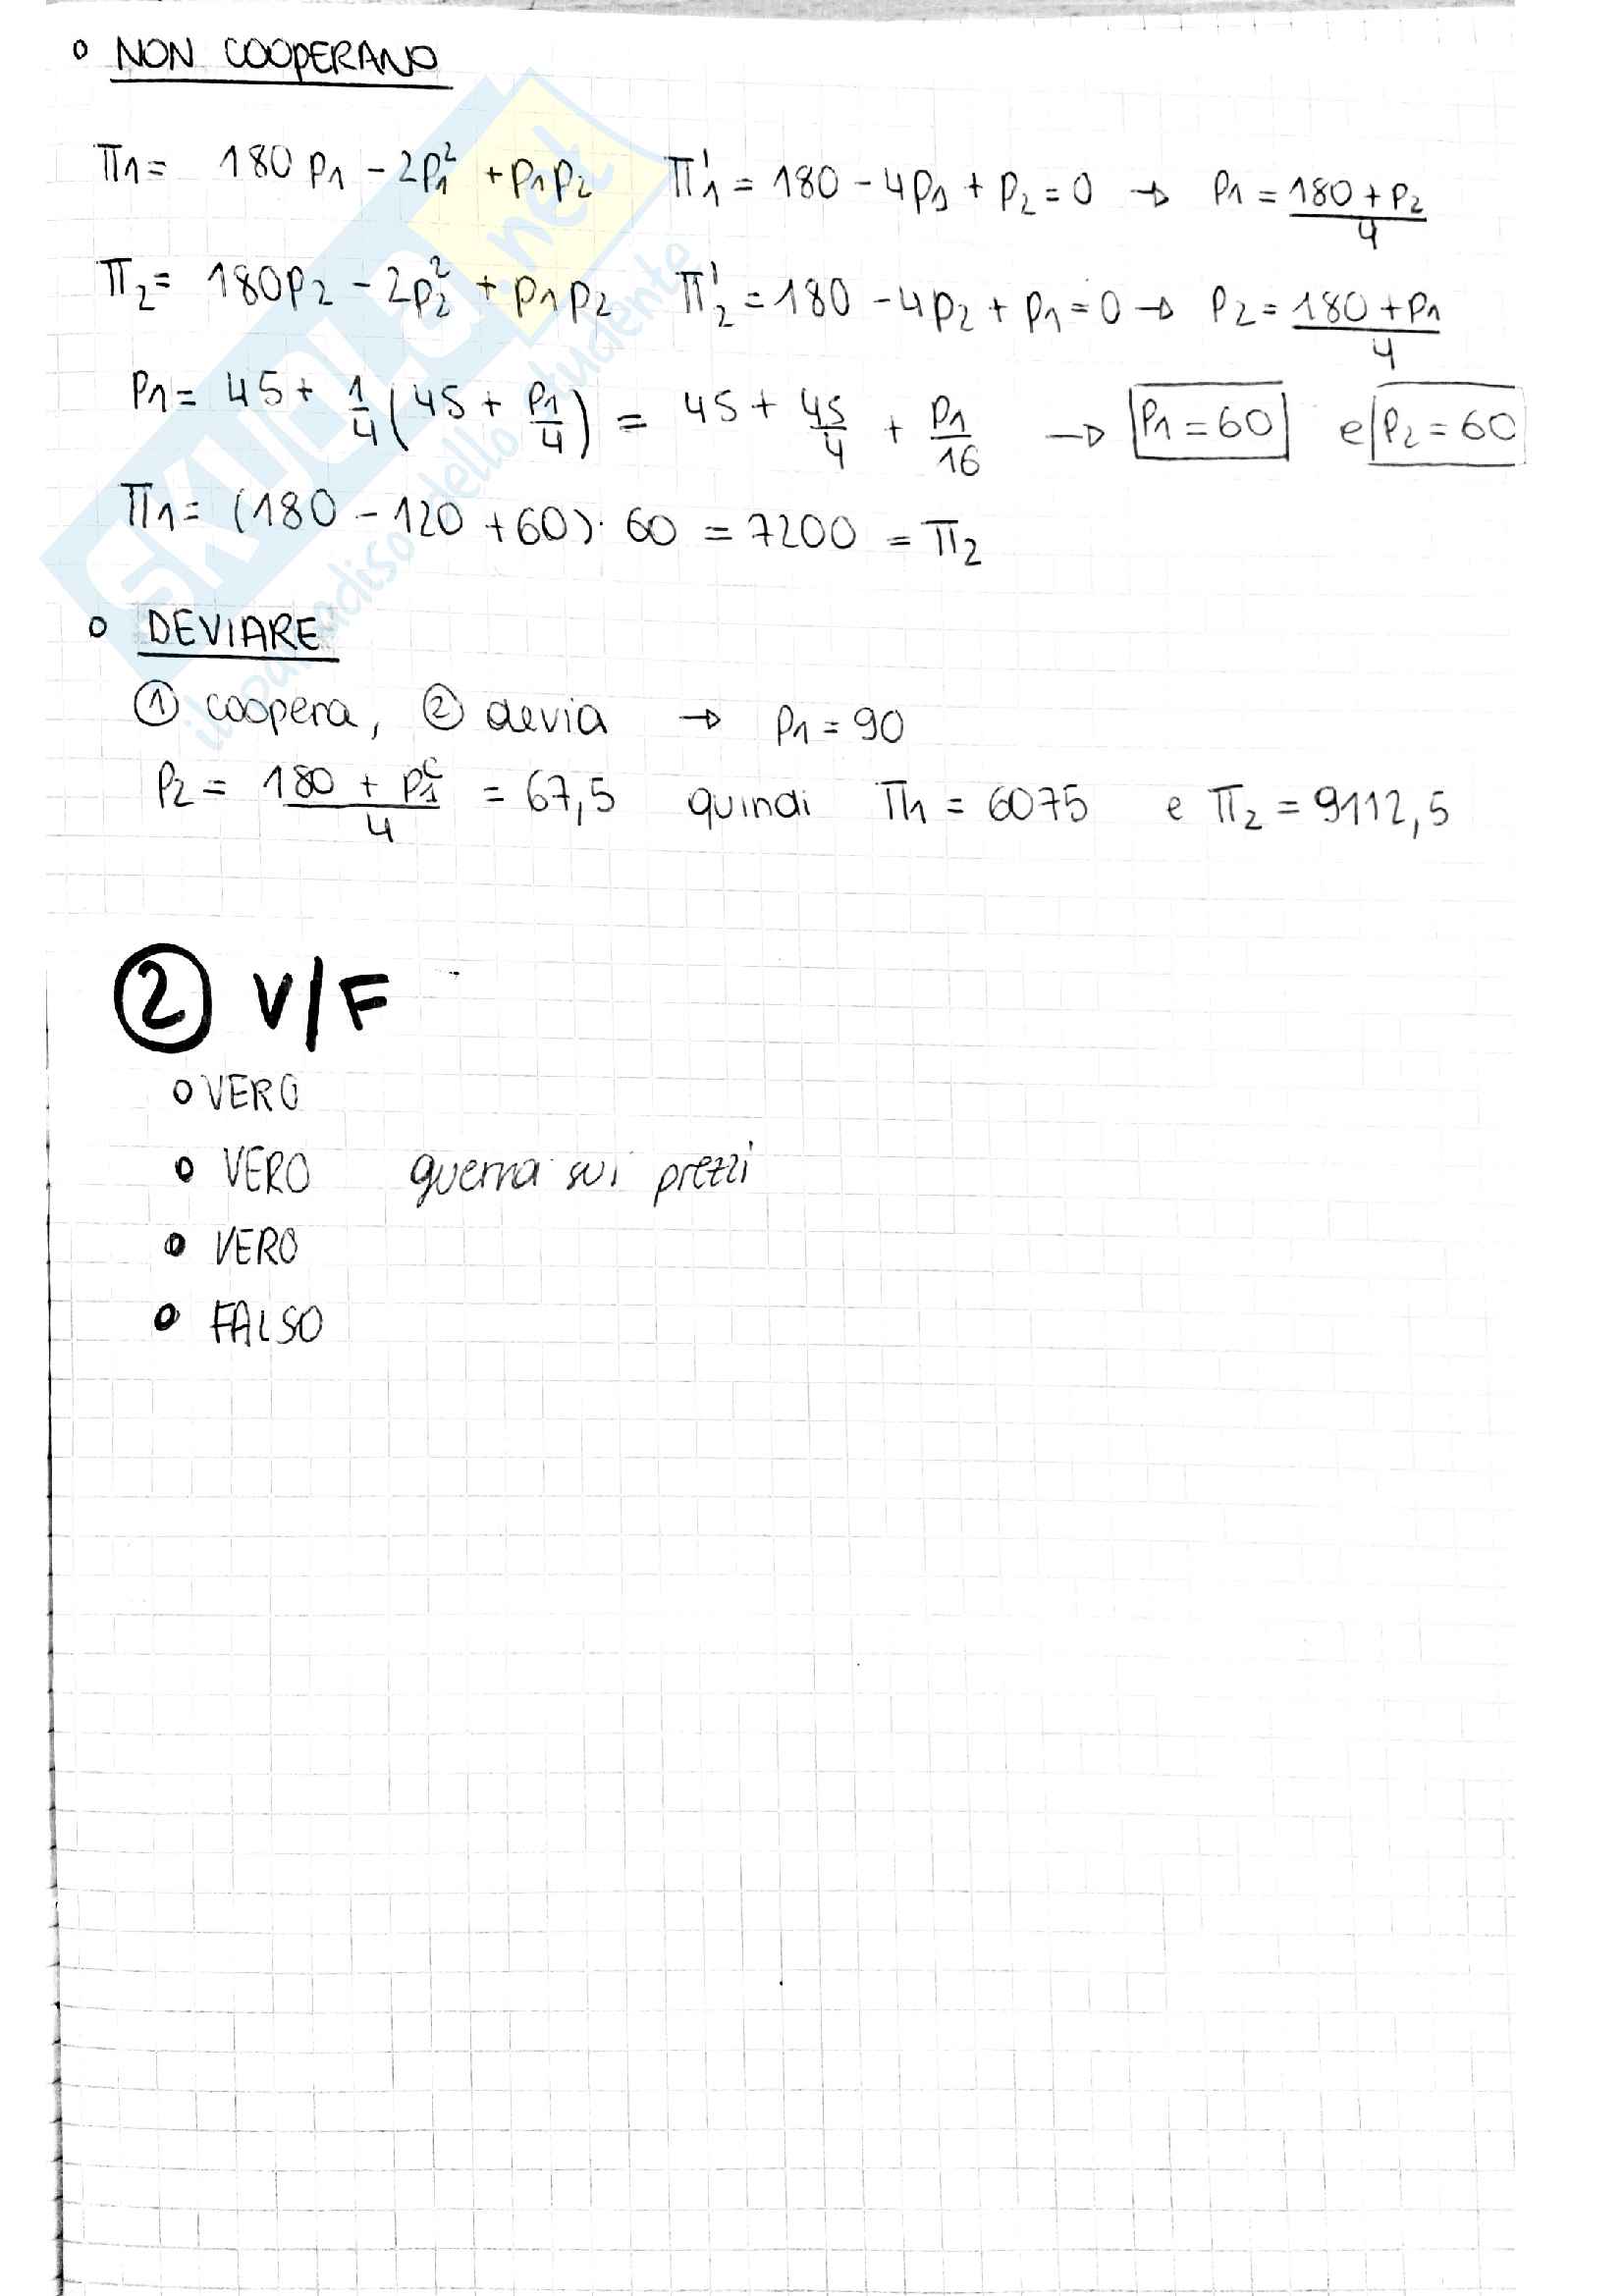 NON COOPERANO
π1 = 180 p1 - 2p1² + p1p2 π'1 = 180 - 4p1 + p2 = 0 → p1 = 180 + p2 / 4
π2 = 180p2 - 2p2² + p1p2 π'2 = 180 - 4p2 + p1 = 0 → p2 = 180 + p1 / 4
p1 = 45 + 1/4 (45 + p1/4) = 45 + 45/4 + p1/16 → p1 = 60 e p2 = 60
π1 = (180 - 120 + 60) · 60 = 7200 = π2
DEVIARE
① coopera, ② devia → p1 = 90
p2 = 180 + p1ᶜ / 4 = 67,5 quindi π1 = 6075 e π2 = 9112,5
② V/F
VERO
VERO guerra sui prezzi
VERO
FALSO
SKUOLA.net
il paradiso dello studente